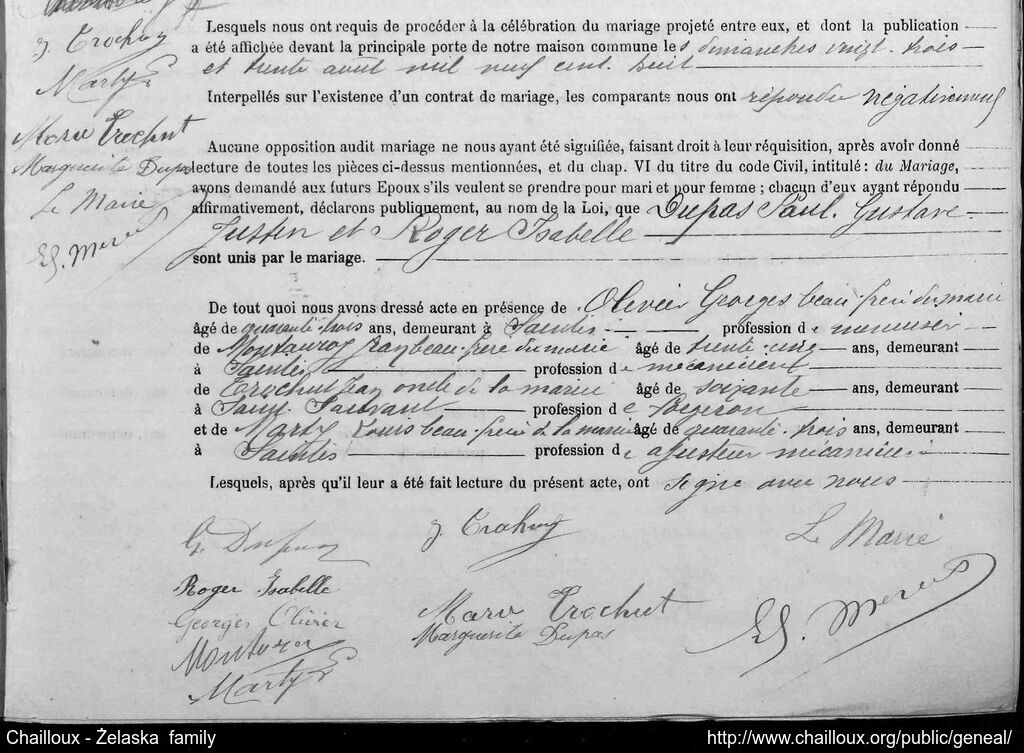 J. Trochut
Marty
Marie Trochut
Marguerite Dupas
Le Maire
Lesquels nous ont requis de procéder à la célébration du mariage projeté entre eux, et dont la publication
a été affichée devant la principale porte de notre maison commune les dimanches vingt-trois
et trente août mil neuf cent huit
Interpellés sur l'existence d'un contrat de mariage, les comparants nous ont répondu négativement
Aucune opposition audit mariage ne nous ayant été signifiée, faisant droit à leur réquisition, après avoir donné
lecture de toutes les pièces ci-dessus mentionnées, et du chap. VI du titre du code Civil, intitulé : du Mariage,
avons demandé aux futurs Epoux s'ils veulent se prendre pour mari et pour femme ; chacun d'eux ayant répondu
affirmativement, déclarons publiquement, au nom de la Loi, que Dupas Paul Gustave
Justin et Roger Isabelle
sont unis par le mariage.
De tout quoi nous avons dressé acte en présence de Olivier Georges beau-frère du marié
âgé de quarante-trois ans, demeurant à Saintes profession de menuisier
de Montauroy beau-frère du marié âgé de trente-une ans, demeurant
à Saintes profession de mécanicien
de Trochut Jean oncle de la mariée âgé de soixante ans, demeurant
à Saint-Sauvant profession de forgeron
et de Marty Louis beau-frère de la mariée âgé de quarante-trois ans, demeurant
à Saintes profession de ajusteur mécanicien
Lesquels, après qu'il leur a été fait lecture du présent acte, ont signé avec nous
G. Dupas
J. Trochut
Le Maire
Roger Isabelle
Georges Olivier
Marie Trochut
Marguerite Dupas
Marty
Chailloux - Żelaska family
http://www.chailloux.org/public/geneal/